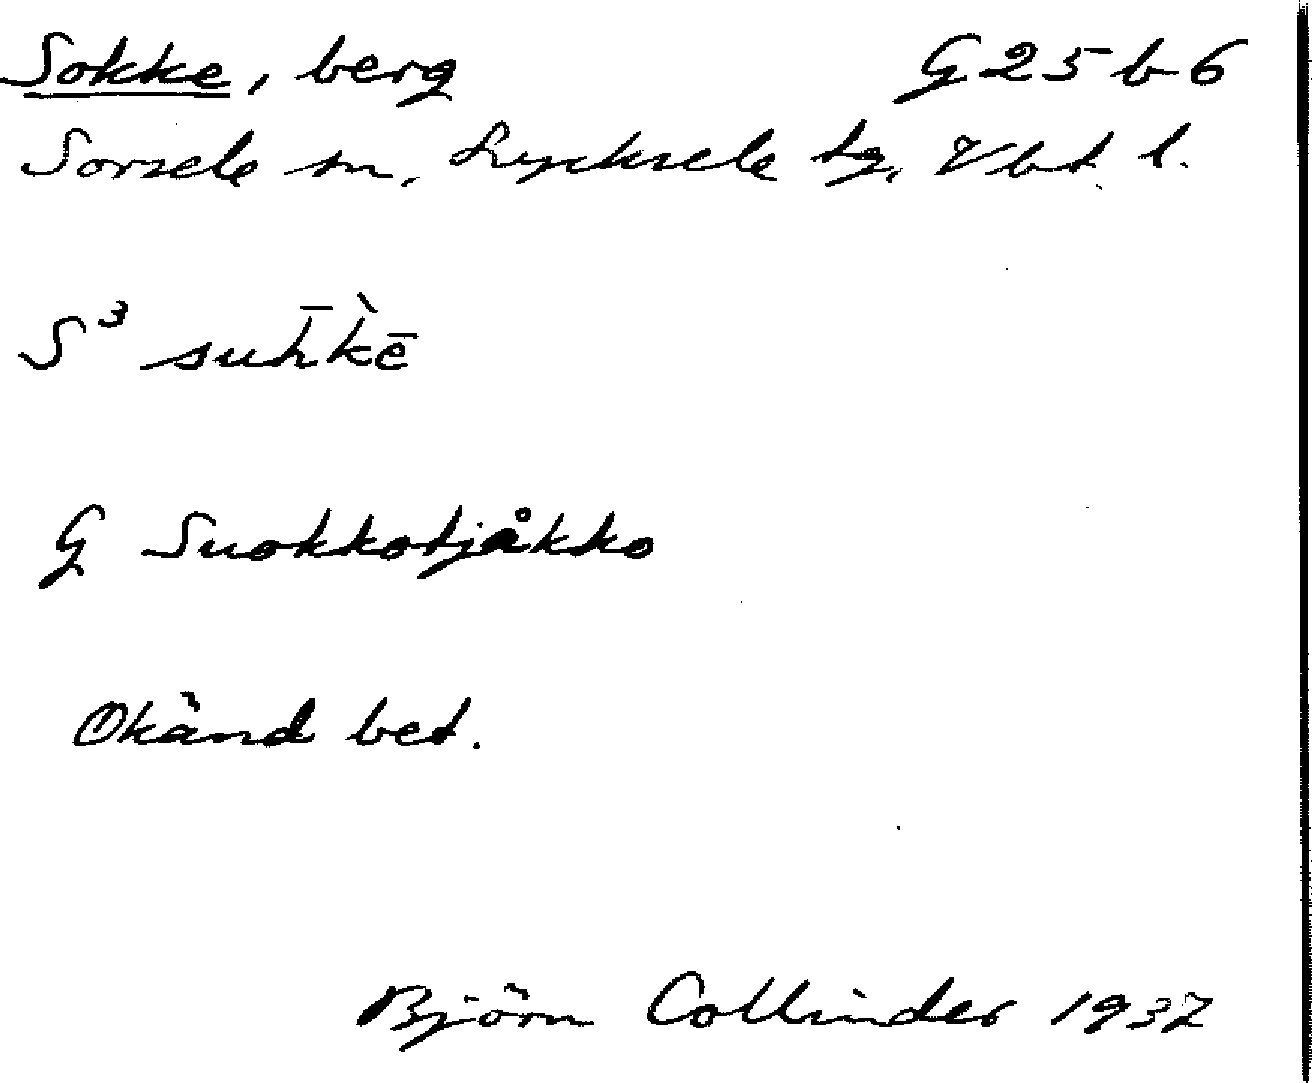 Sokke, berg G25b6
Sorsele sn, Lycksele tg, Vbt l.
S³ suh̄k̀ē
G Suokkotjåkko
Okänd bet.
Björn Collinder 1937